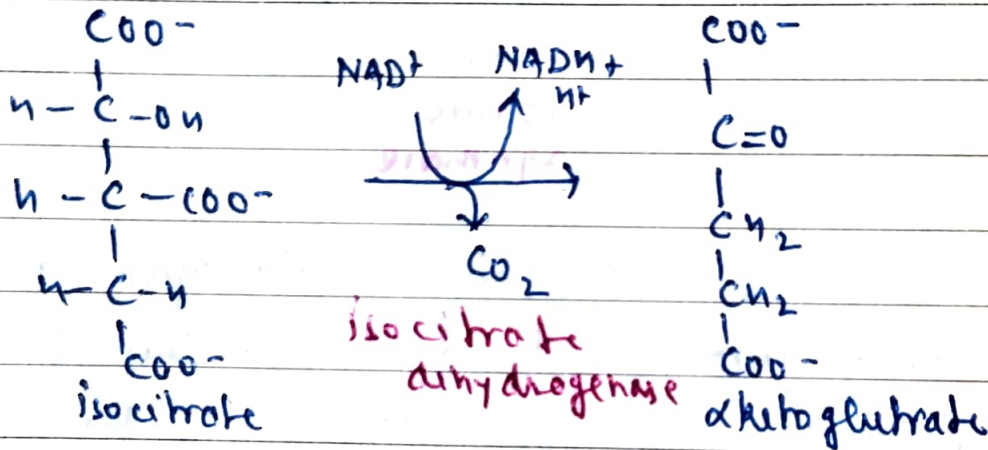 COO-
H-C-OH
H-C-COO-
H-C-H
COO-
isocitrate
NAD+ NADH+
H+
CO2
isocitrate
dihydrogenase
COO-
C=O
CH2
CH2
COO-
αketoglutrate